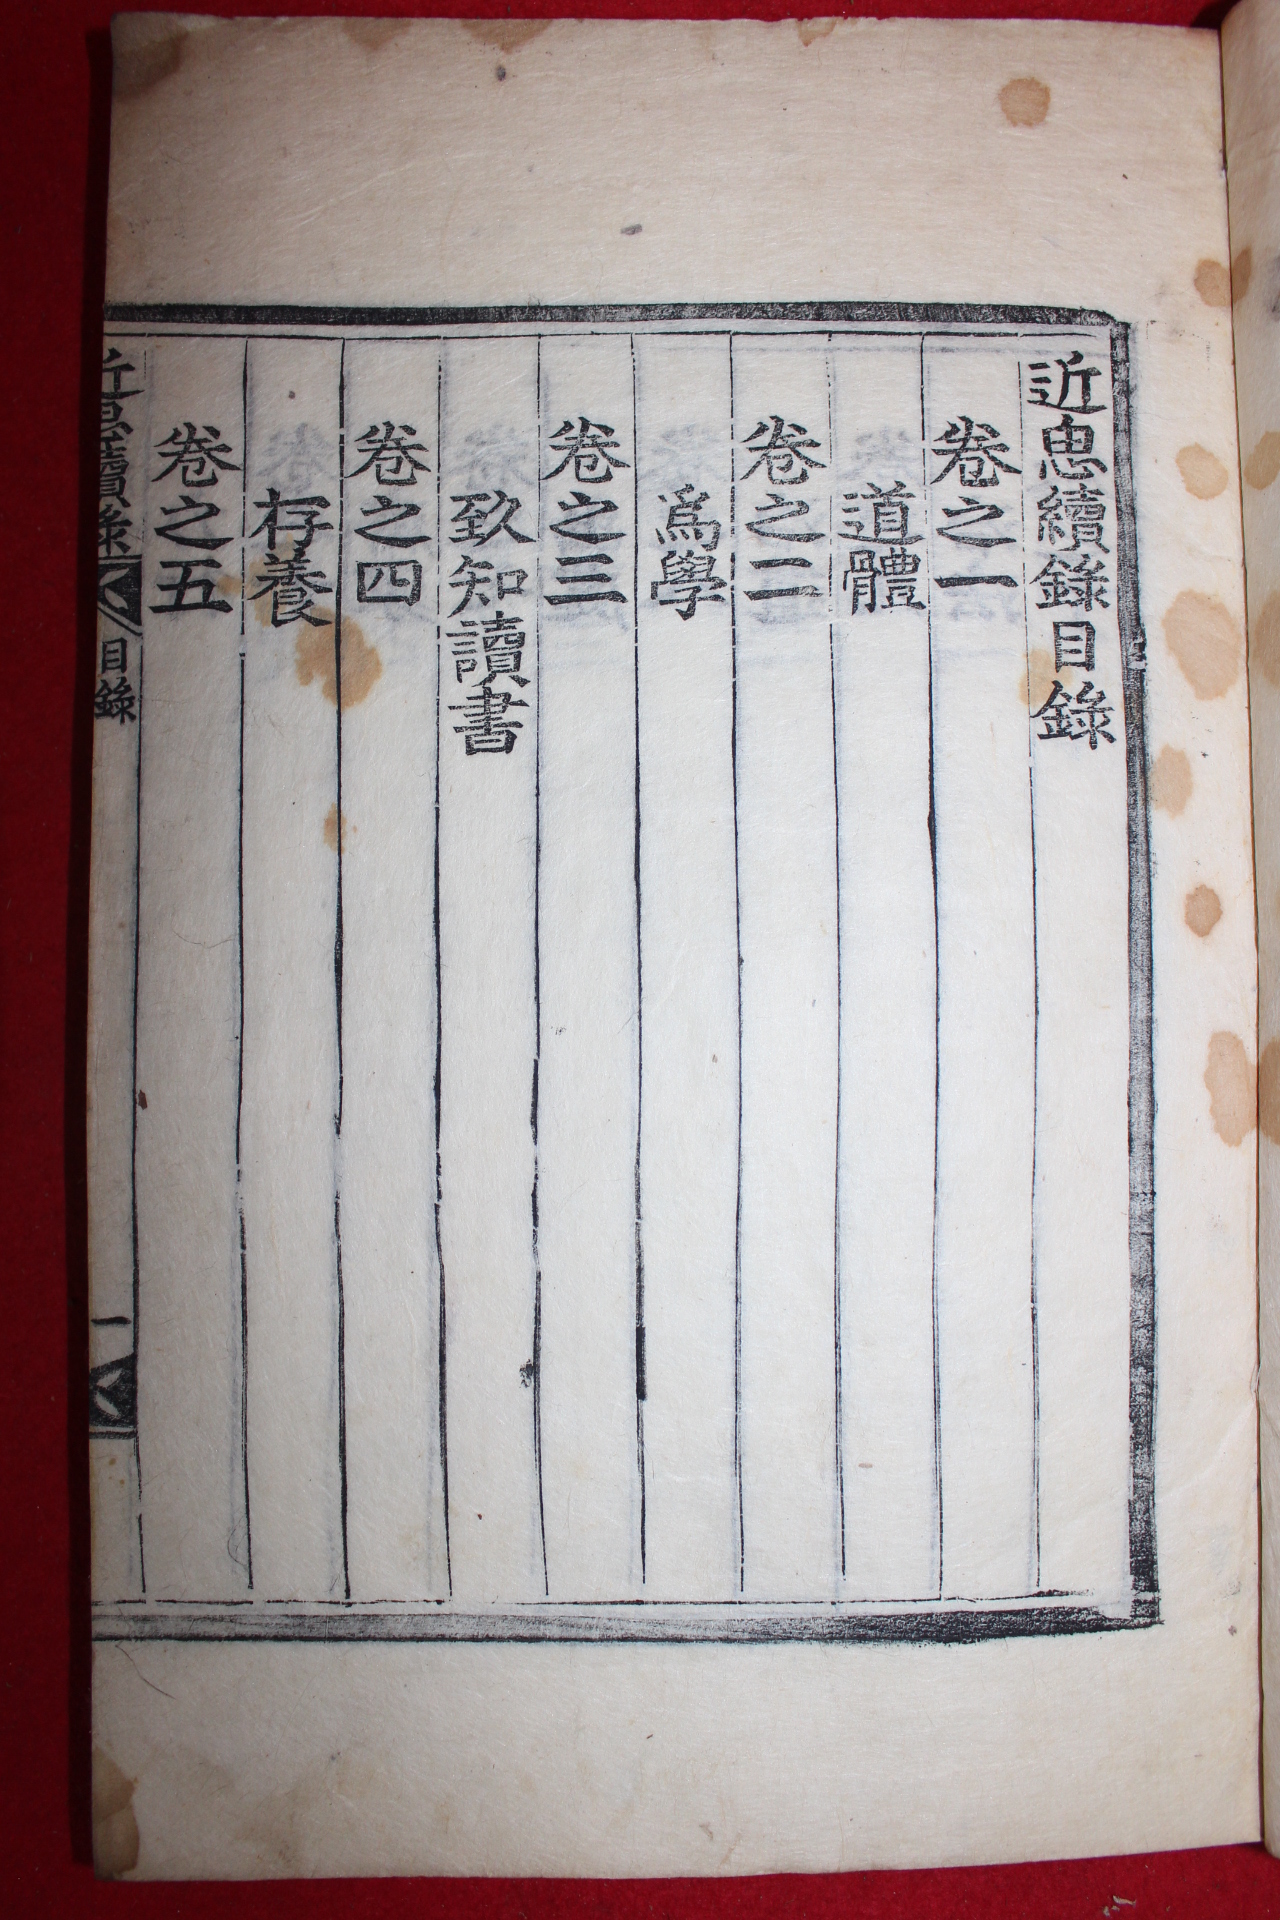 近思續錄目錄
卷之一
道體
卷之二
爲學
卷之三
致知讀書
卷之四
存養
卷之五
近思續錄
目錄
一